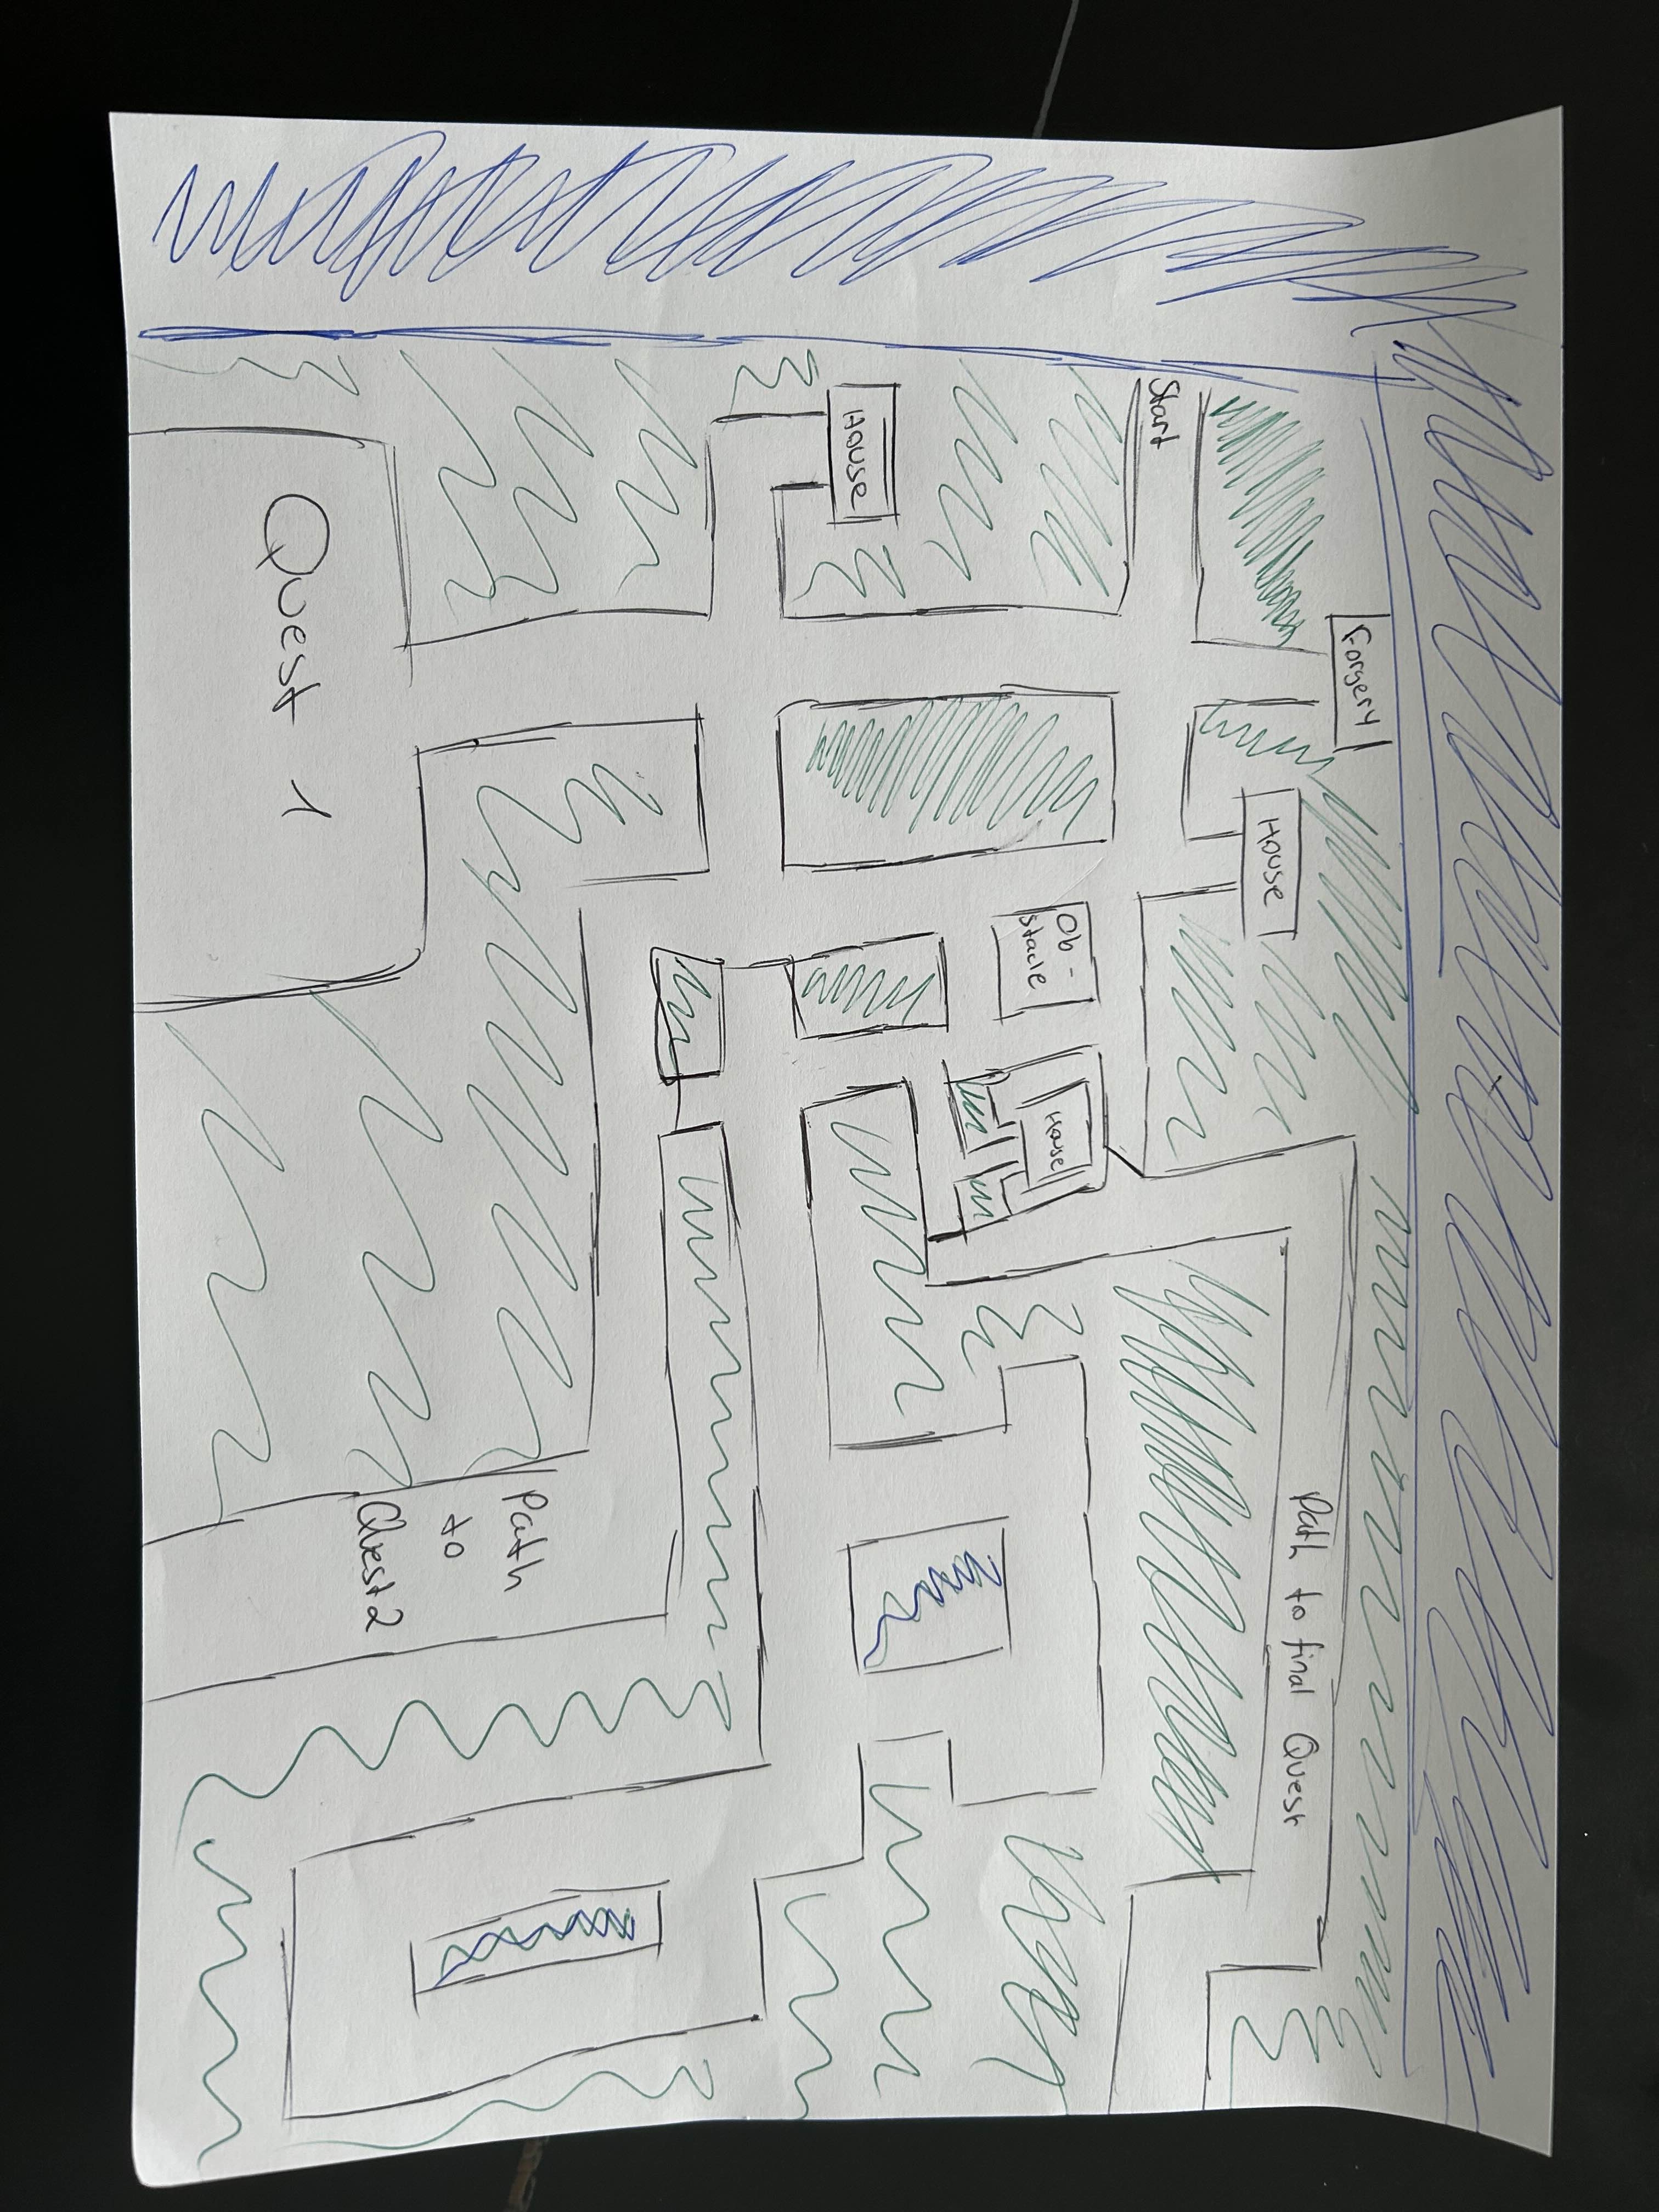 Forgery
House
Path to final Quest
Start
Ob-
stacle
House
House
Path
to
Quest 2
Quest 1